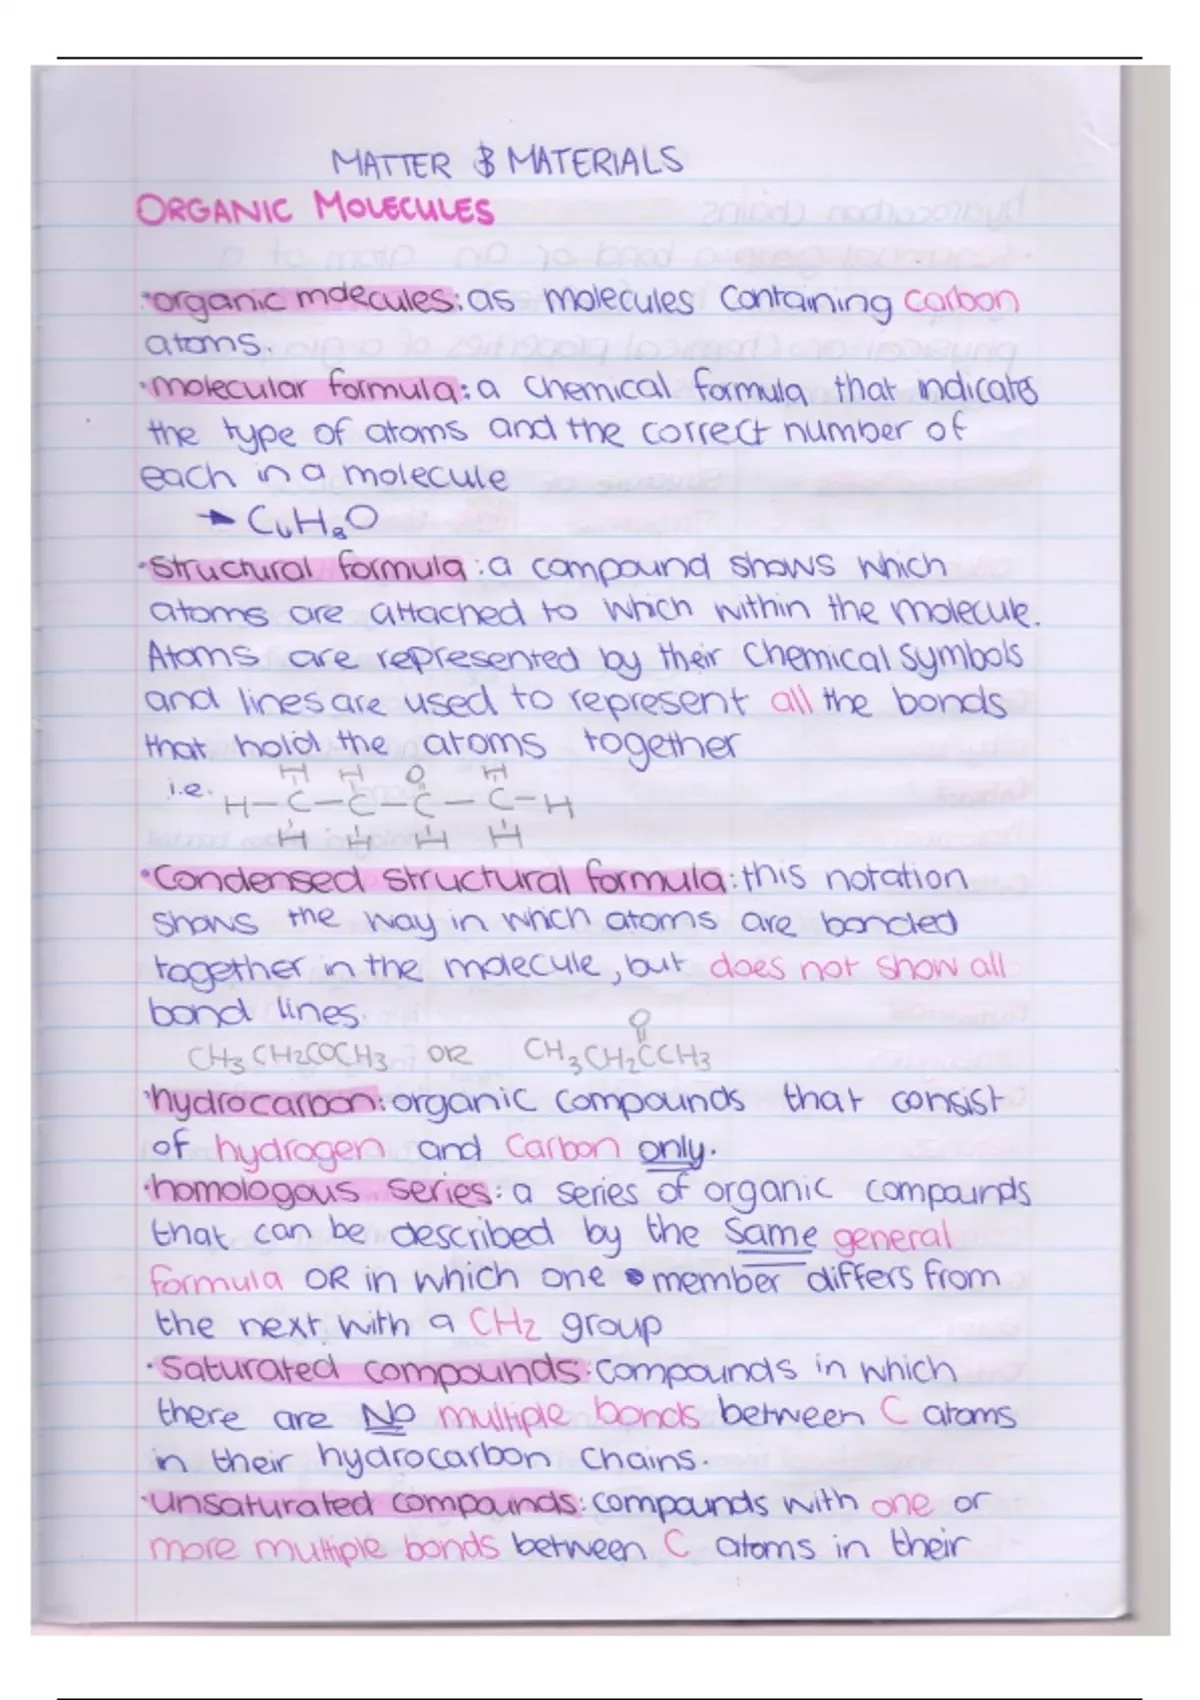 MATTER & MATERIALS
ORGANIC MOLECULES
•organic molecules: as molecules containing carbon
atoms.
•molecular formula: a chemical formula that indicates
the type of atoms and the correct number of
each in a molecule
→ C4H8O
•Structural formula: a compound shows which
atoms are attached to which within the molecule.
Atoms are represented by their chemical symbols
and lines are used to represent all the bonds
that hold the atoms together
H H O H
i.e. H-C-C-C-C-H
H H H H
•Condensed structural formula: this notation
shows the way in which atoms are bonded
together in the molecule, but does not show all
bond lines.
O
CH3CH2COCH3 OR CH3CH2CCH3
•hydrocarbon: organic compounds that consist
of hydrogen and carbon only.
•homologous series: a series of organic compounds
that can be described by the same general
formula OR in which one member differs from
the next with a CH2 group
•Saturated compounds: compounds in which
there are NO multiple bonds between C atoms
in their hydrocarbon chains.
•Unsaturated compounds: compounds with one or
more multiple bonds between C atoms in their